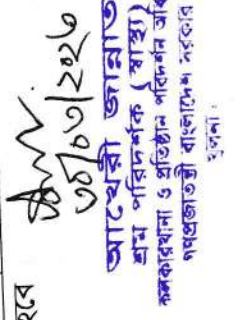 হবে
৩১/০৩/২০২৩
আখেরী জান্নাত
শ্রম পরিদর্শক (স্বাস্থ্য)
কলকারখানা ও প্রতিষ্ঠান পরিদর্শন অধি
গণপ্রজাতন্ত্রী বাংলাদেশ সরকার
খুলনা।